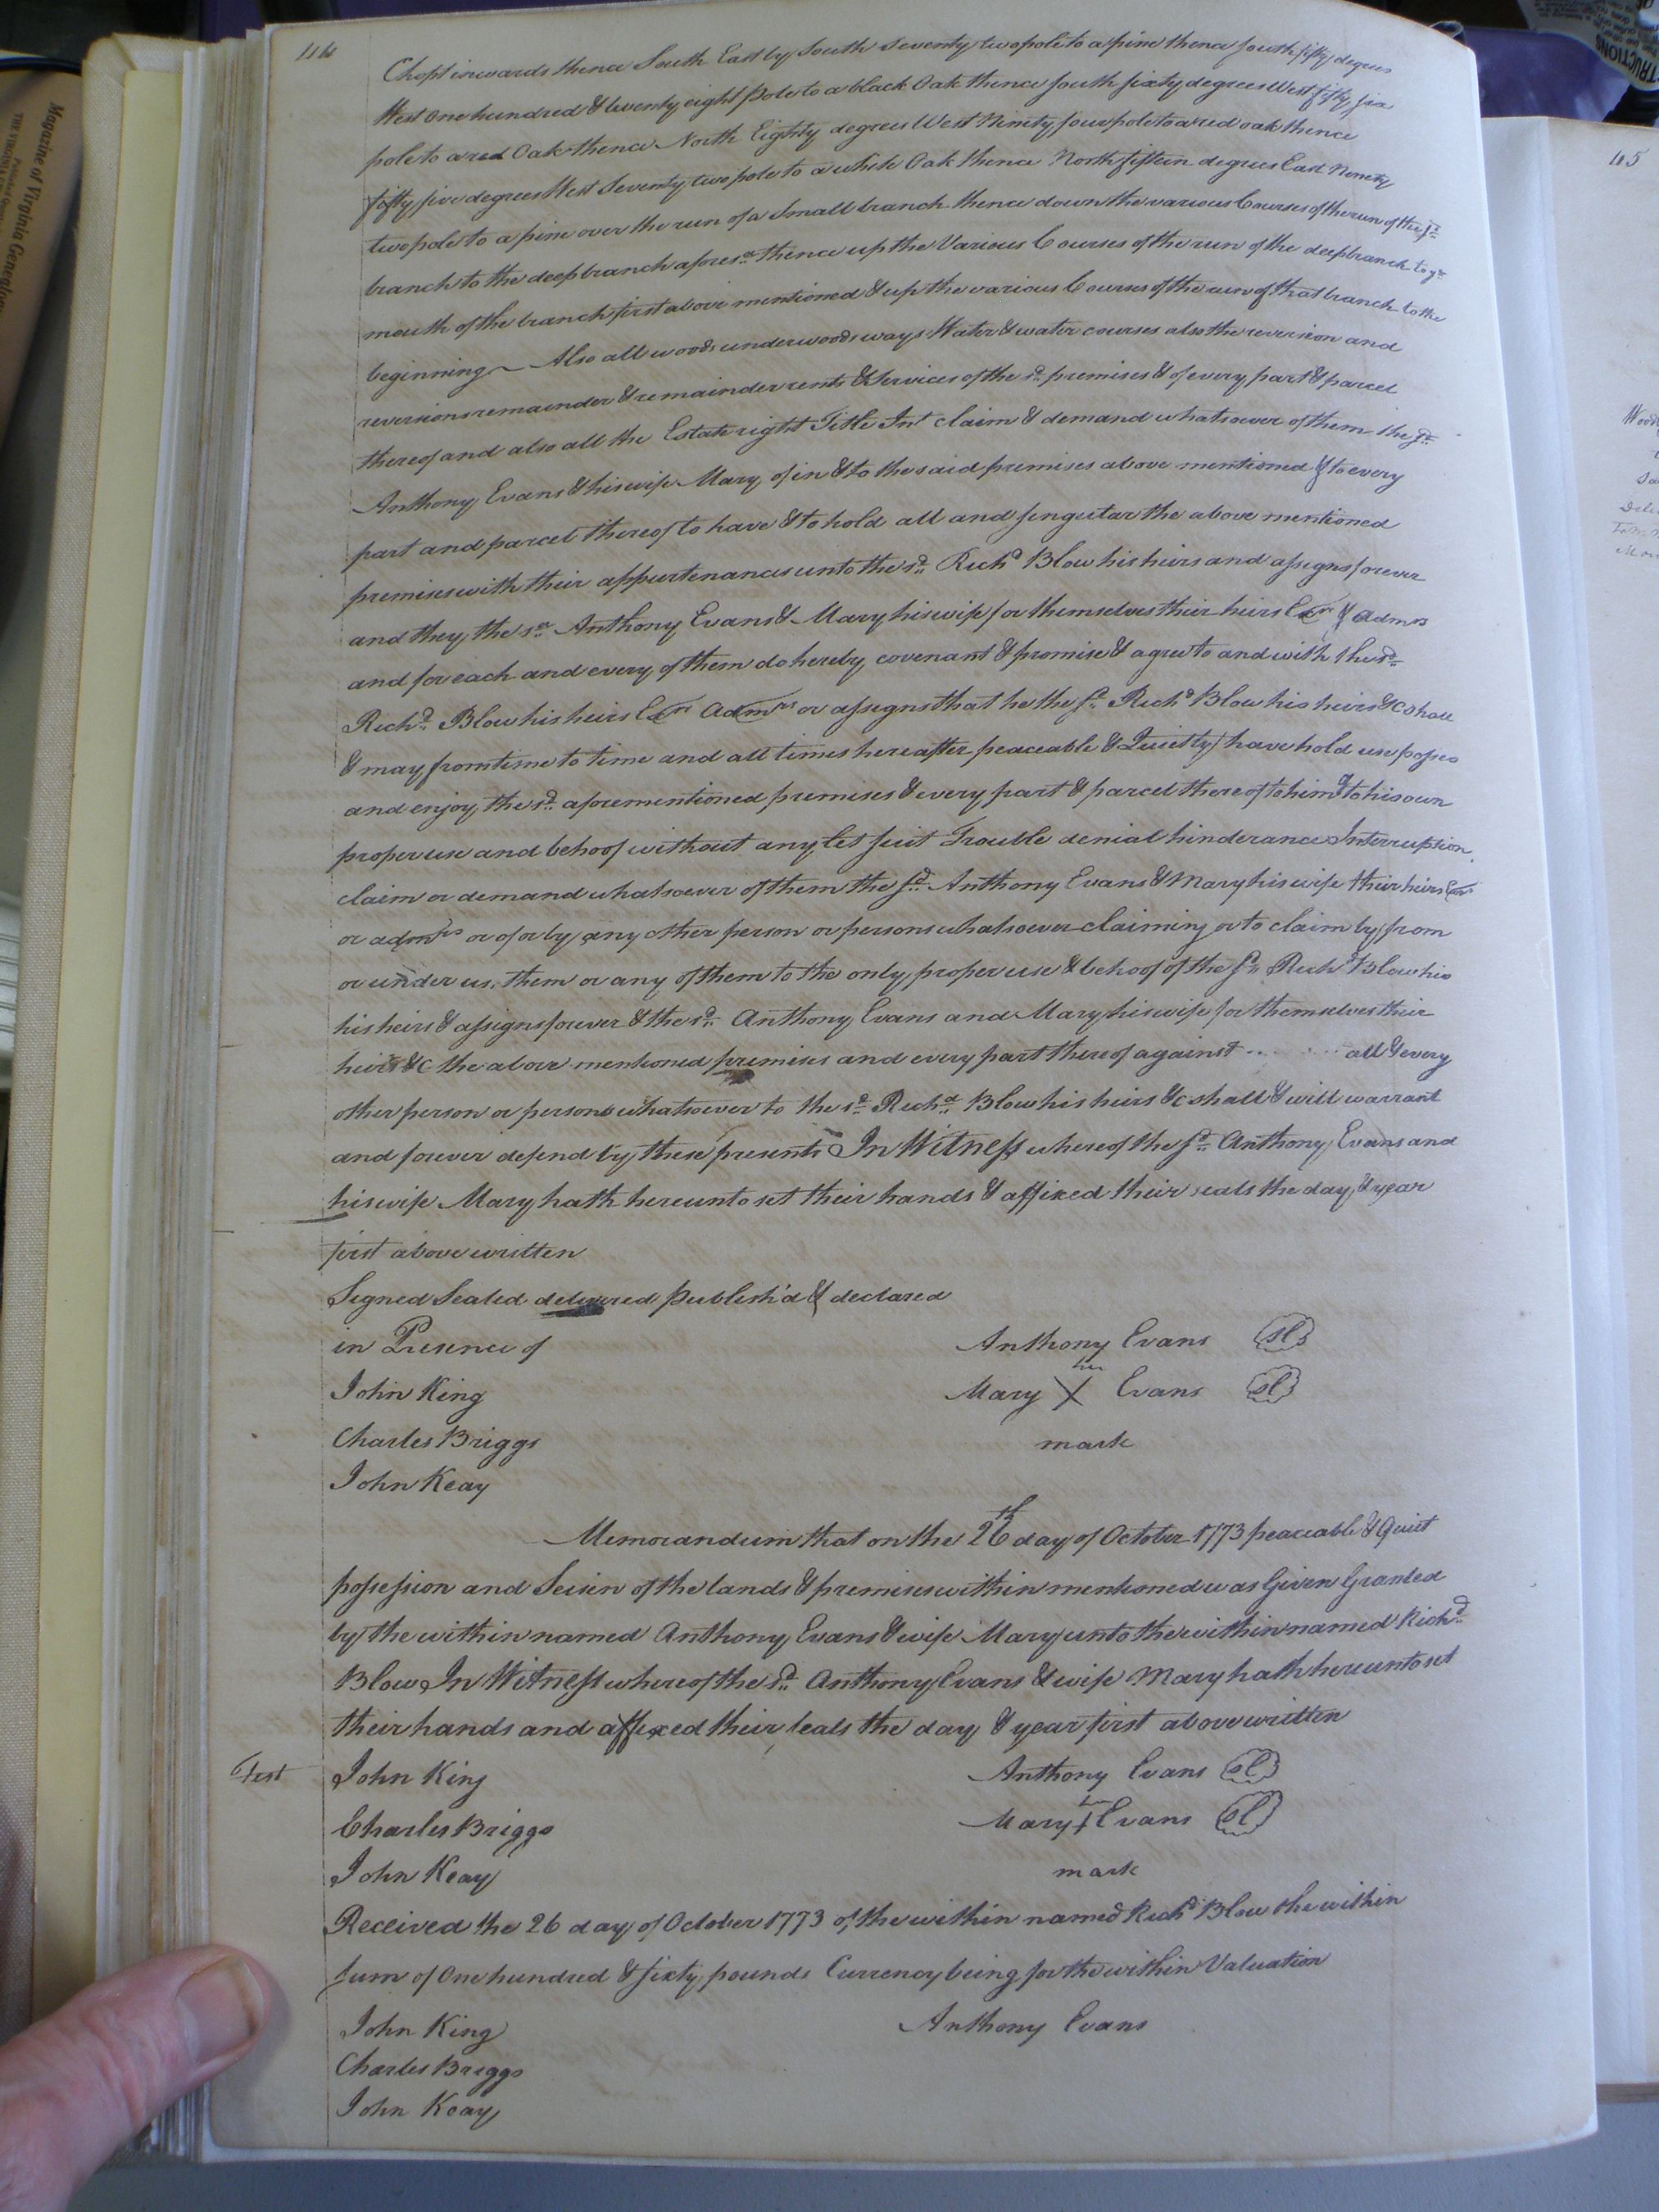 Chopt inwards thence South East by South Seventy two pole to a pine thence South fifty degrees
West One hundred & twenty eight pole to a black Oak thence South sixty degrees West fifty six
pole to a red Oak thence North Eighty degrees West Ninety four pole to a red oak thence
fifty five degrees West Seventy two pole to a white Oak thence North fifteen degrees East Ninety
two pole to a pine over the run of a Small branch thence down the various Courses of the run of the sd.
branch to the deep branch aforesd. thence up the Various Courses of the run of the deep branch to ye
mouth of the branch first above mentioned & up the various Courses of the run of that branch to the
beginning Also all woods underwoods ways Water & water courses also the reversion and
reversions remainder & remainder rents & Services of the sd. premises & of every part & parcel
thereof and also all the Estate right Title Int claim & demand whatsoever of them the sd.
Anthony Evans & his wife Mary of in & to the said premises above mentioned & to every
part and parcel thereof to have & to hold all and singular the above mentioned
premises with their appurtenances unto the sd. Richd Blow his heirs and assigns forever
and they the sd. Anthony Evans & Mary his wife for themselves their heirs Exrs & Admrs
and for each and every of them do hereby covenant & promise & agree to and with the sd.
Richd. Blow his heirs Exrs Admrs or assigns that he the sd. Richd Blow his heirs &c shall
& may from time to time and all times hereafter peaceable & Quietly have hold use posses
and enjoy the sd. aforementioned premises & every part & parcel thereof to him & to his own
proper use and behoof without any let suit Trouble denial hinderance Interruption
claim or demand whatsoever of them the sd. Anthony Evans & Mary his wife their heirs Exrs
or admrs or of or by any other person or persons whatsoever claiming or to claim by from
or under us, them or any of them to the only proper use & behoof of the sd. Richd Blow his
his heirs & assigns forever & the sd. Anthony Evans and Mary his wife for themselves their
heirs &c the above mentioned premises and every part thereof against all & every
other person or persons whatsoever to the sd. Richd. Blow his heirs &c shall & will warrant
and forever defend by these presents In Witness whereof the sd. Anthony Evans and
his wife Mary hath hereunto set their hands & affixed their seals the day & year
first above written
Signed Sealed delivered Publish'd & declared
in Presence of Anthony Evans sl
her
John King Mary X Evans sl
Charles Briggs mark
John Keay
Memorandum that on the 26th day of October 1773 peaceable & Quiet
possession and Seisen of the lands & premises within mentioned was Given Granted
by the within named Anthony Evans & wife Mary unto the within named Richd.
Blow In Witness whereof the sd. Anthony Evans & wife Mary hath hereunto set
their hands and affixed their seals the day & year first above written
Test John King Anthony Evans sl
her
Charles Briggs Mary + Evans sl
John Keay mark
Received the 26 day of October 1773 of the within named Richd Blow the within
sum of One hundred & sixty pounds Currency being for the within Valuation
John King Anthony Evans
Charles Briggs
John Keay
Magazine of Virginia